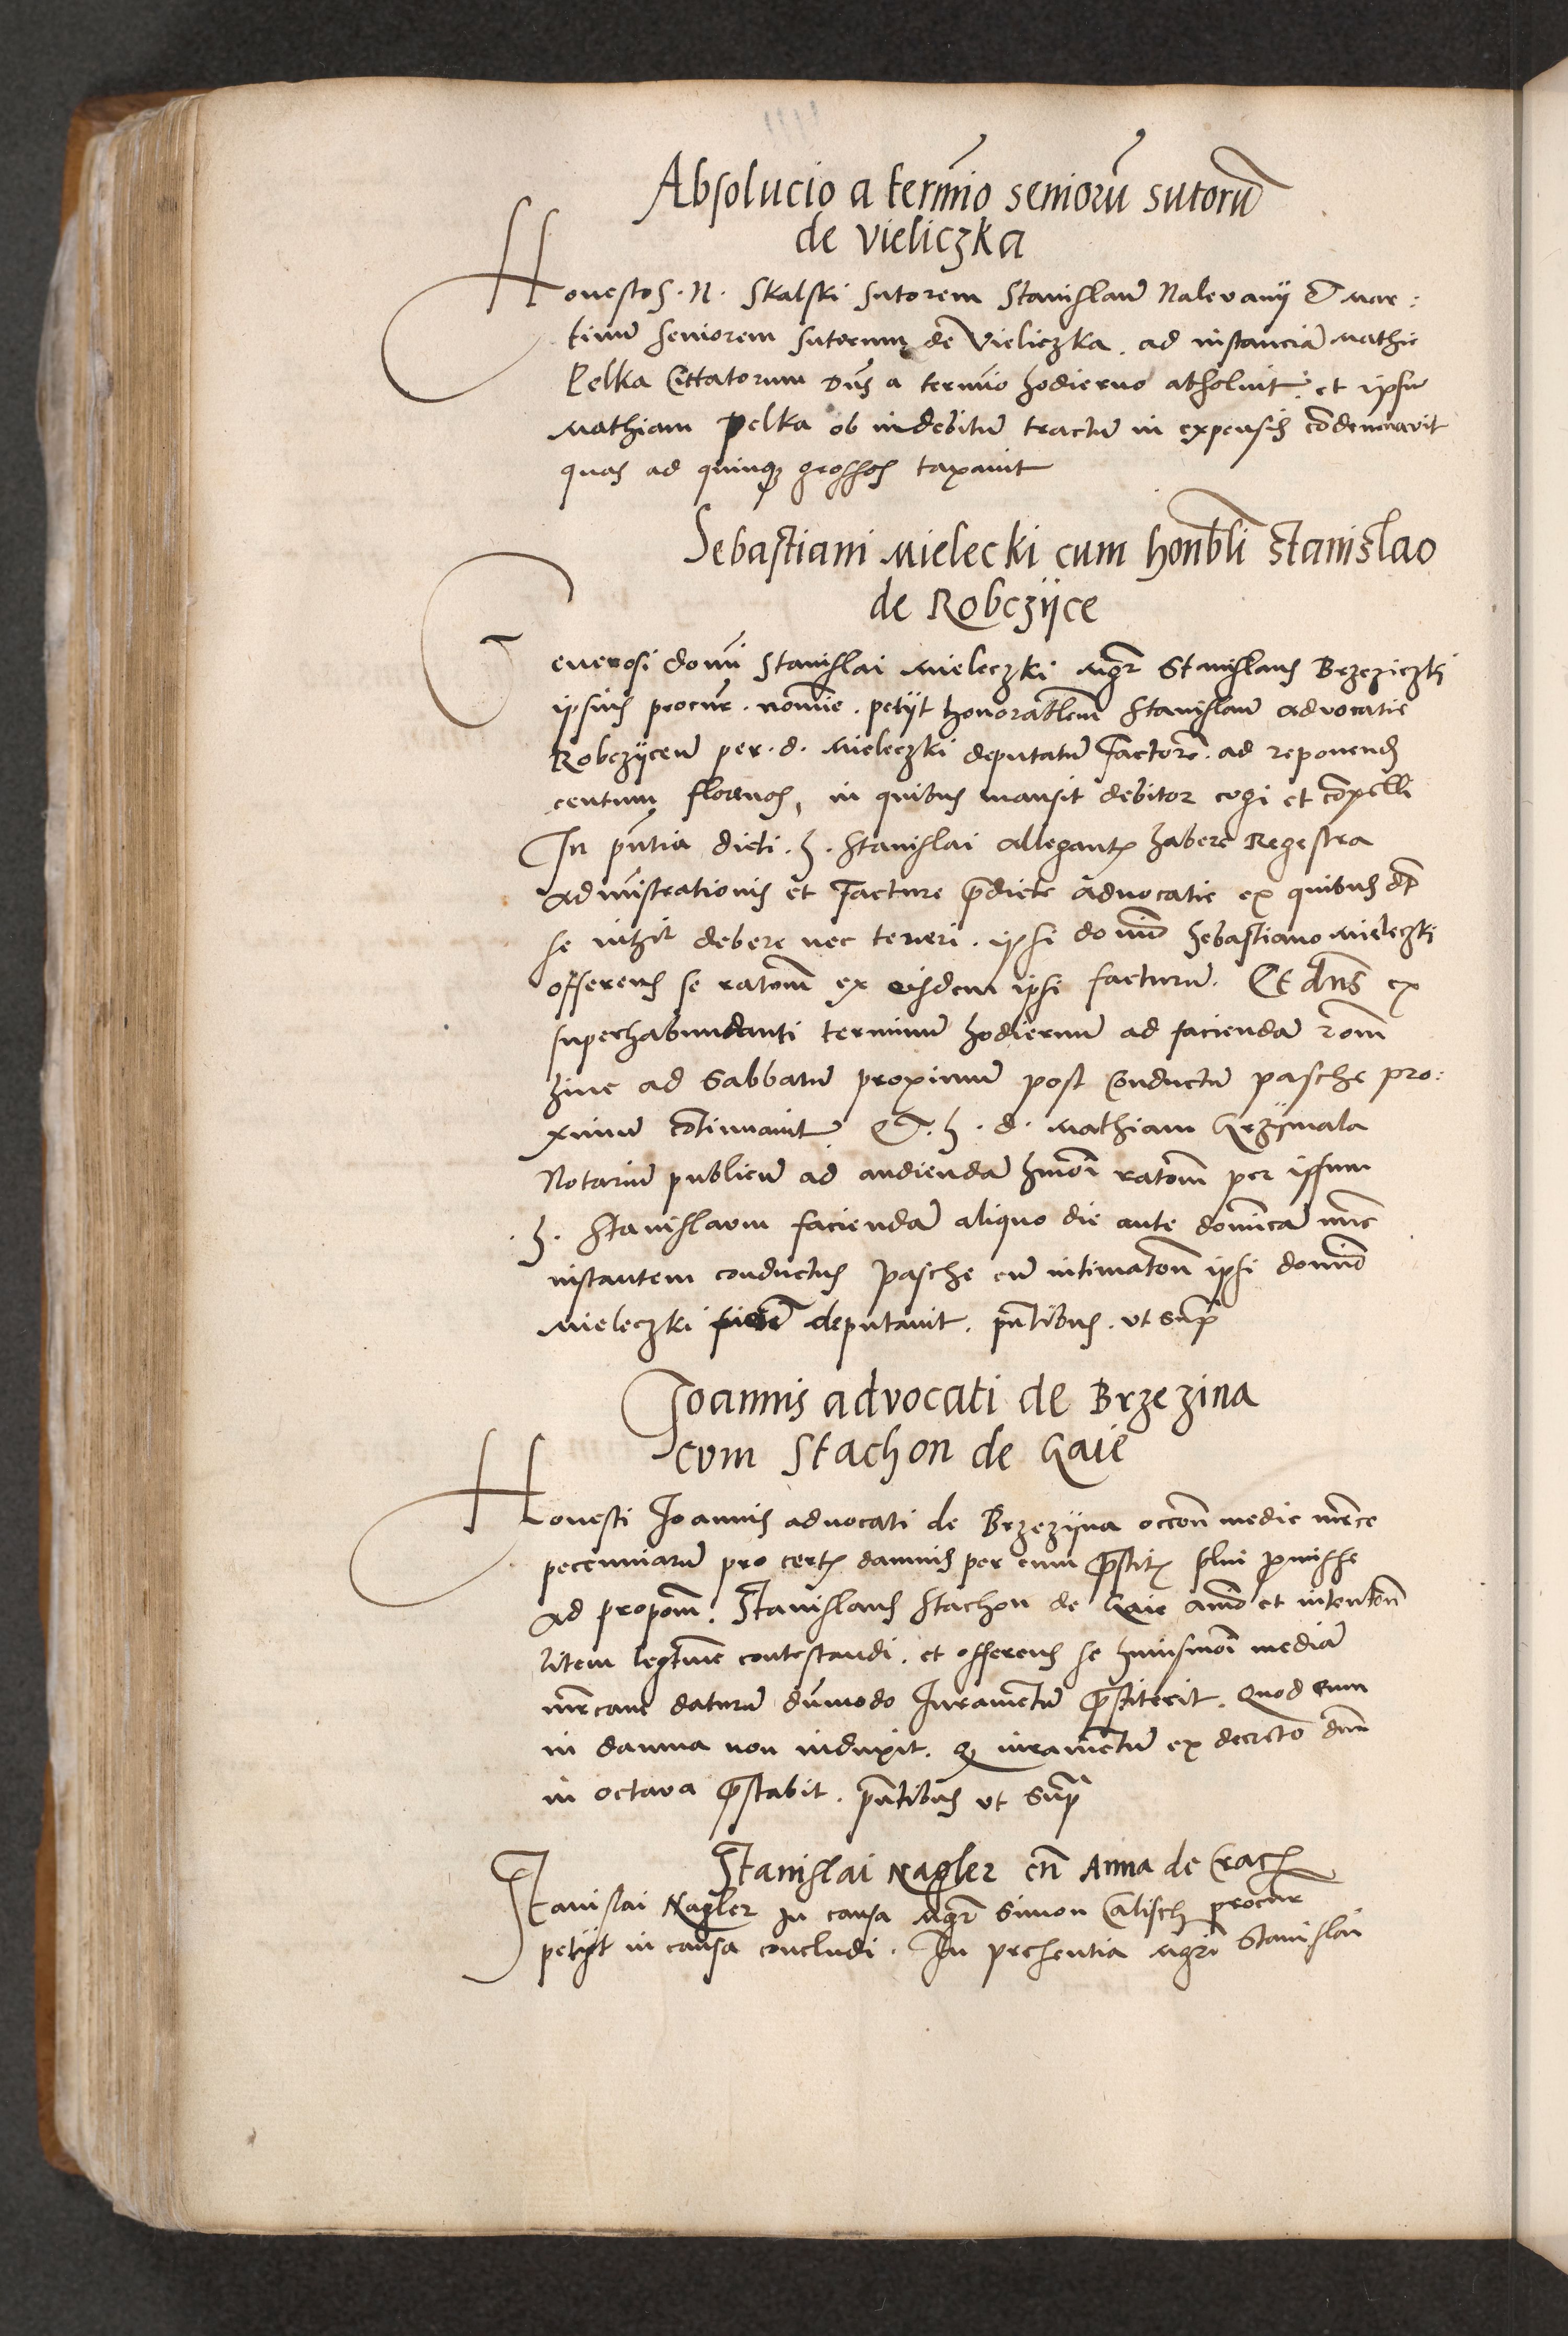 Absolucio a termĩo seniorũ sutorũ
de Vieliczka
Honestos . N . Skalski sutorem Stanislaũ Nalevanij & Mar:
tinũ seniorem sutorum de Vieliczka . ad instanciã Mathie
Pelka Cittatorum Dñs a termĩo hodierno absolvit . et ipsũ
Mathiam Pelka ob indebitũ tractũ in expensis cõdemnavit
quas ad quinqȝ grossos taxavit
Sebastiani Mielecki cum honbli Stanislao
de Robczijce
Generosi domĩ Stanislai Mieleczki Mgr̃ Stanislaus Brzeziczki
ipsius procur̃ . nomĩe . petijt honorabl̃em Stanislaũ advocatie
Robczijceñ per . d . Mieleczki deputatũ factorẽ . ad reponend
centum florenos, in quibus mansit debitor cogi et cõpelli
In pñtia dicti . h . Stanislai allegantꝭ habere Regestra
administrationis et facture p̃dicte advocatie ex quibus
se nihil debere nec teneri . ipsi domĩo Sebastiano Mieleczki
offerens se ratom̃ ex eisdem ipsi facturũ . Et dñs ex
superhabundanti terminũ hodiernũ ad faciendã rom̃
hinc ad Sabbatũ proximũ post Conductũ pasche pro:
ximũ cõtinuavit Et . h . d . Mathiam Grzijmala
Notariũ publicũ ad audiendã hmõi ratom̃ per ipsum
. h . Stanislaum faciendã aliquo die ante domĩcã nũc
instantem conductus Pasche cũ intimatom̃ ipsi domĩo
Mieleczki deputavit . pñtibus . ut sup̃
Joannis advocati de Brzezina
cum Stachon de Gaie
Honesti Joannis advocati de Brzezijna occom̃ medie mr̃ce
peccuniarũ pro certꝭ damnis per eum p̃stitꝭ
ad propom̃ . Stanislaus Stachon de Gaie animo et intentom̃
litem legitime contestandi . et offerens se huiusmõi mediã
mr̃cam daturũ dũmodo Juramentũ p̃stiterit . Quod eum
in damna non induxit . Qđ iuramentũ ex decreto dñi
in octava p̃stabit . pñtibus ut sup̃
Stanislai Nagler cũ Anna de Crac
Stanislai Nagler In causa Mgr̃ Simon Calisch procur̃
petijt in causa concludi . In presentia Mgri Stanislai